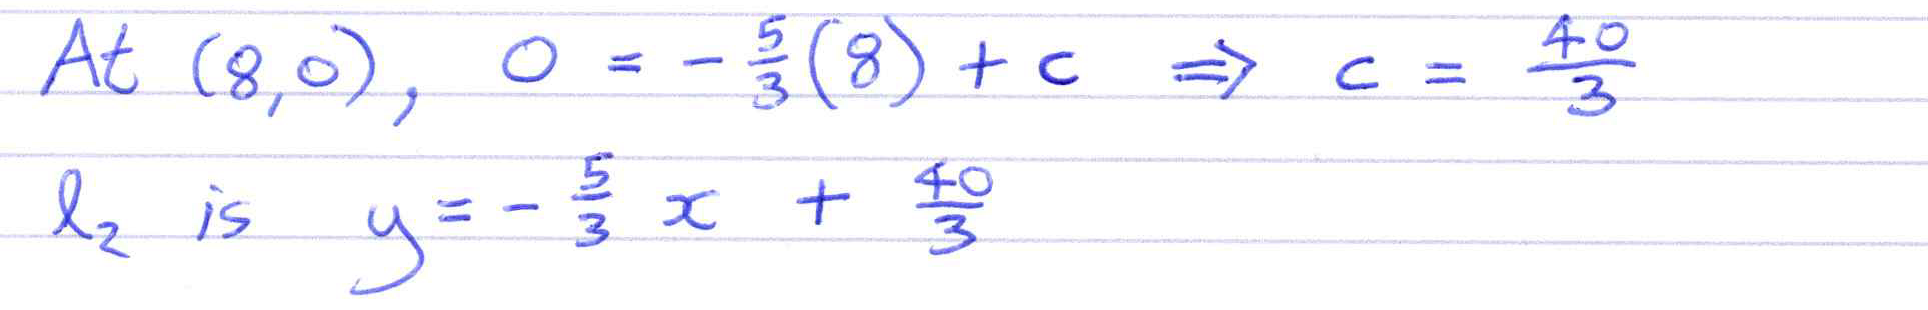 At (8,0), 0 = -5/3(8) + c ⇒ c = 40/3
l₂ is y = -5/3 x + 40/3